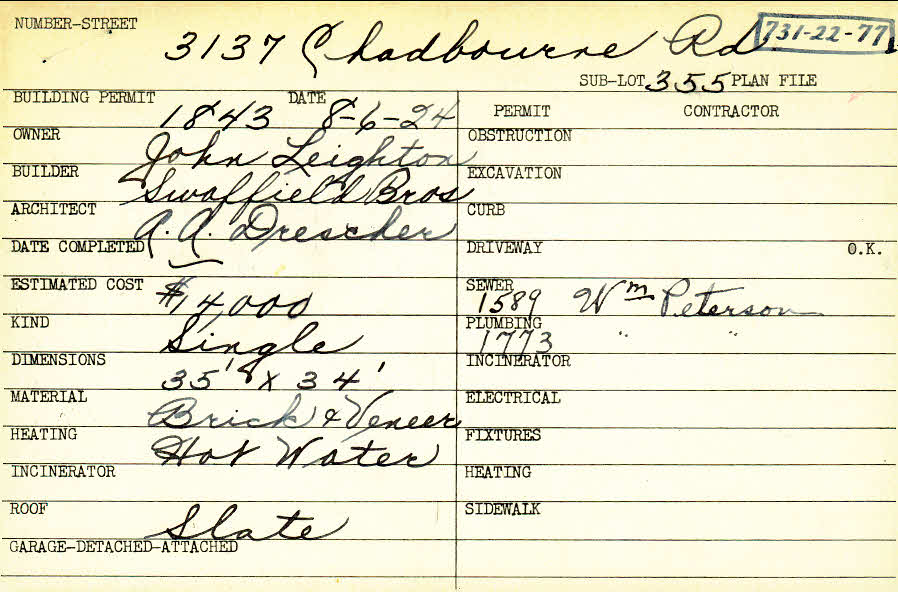 NUMBER-STREET
3137 Chadbourne Rd. 731-22-77
SUB-LOT 355 PLAN FILE
BUILDING PERMIT 1843 DATE 8-6-24
OWNER John Leighton
BUILDER Swaffield Bros
ARCHITECT A. A. Drescher
DATE COMPLETED
ESTIMATED COST $14,000
KIND Single
DIMENSIONS 35' x 34'
MATERIAL Brick & Veneer
HEATING Hot Water
INCINERATOR
ROOF Slate
GARAGE-DETACHED-ATTACHED
PERMIT CONTRACTOR
OBSTRUCTION
EXCAVATION
CURB
DRIVEWAY O.K.
SEWER 1589 Wm Peterson
PLUMBING 1773 " "
INCINERATOR
ELECTRICAL
FIXTURES
HEATING
SIDEWALK